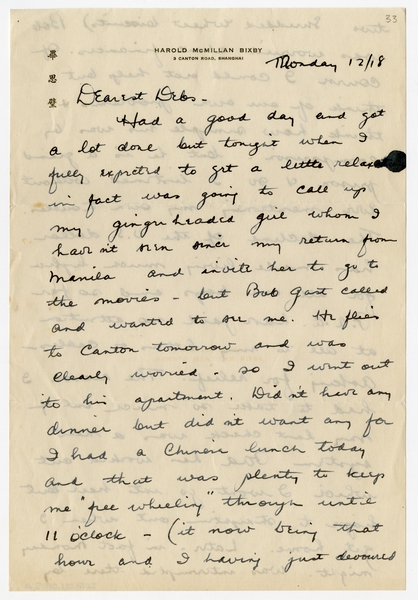 33
畢
思
璧
HAROLD McMILLAN BIXBY
3 CANTON ROAD, SHANGHAI
Monday 12/18
Dearest Debs -
Had a good day and got
a lot done but tonight when I
fully expected to get a little relaxat
in fact was going to call up
my ginger headed girl whom I
have n't seen since my return from
Manila and invite her to go to
the movies - but Bob Gast called
and wanted to see me. He flies
to Canton tomorrow and was
clearly worried - so I went out
to his apartment. Did n't have any
dinner but did n't want any for
I had a Chinese lunch today
and that was plenty to keep
me "free wheeling" through until
11 o'clock - (it now being that
hour and I having just devoured